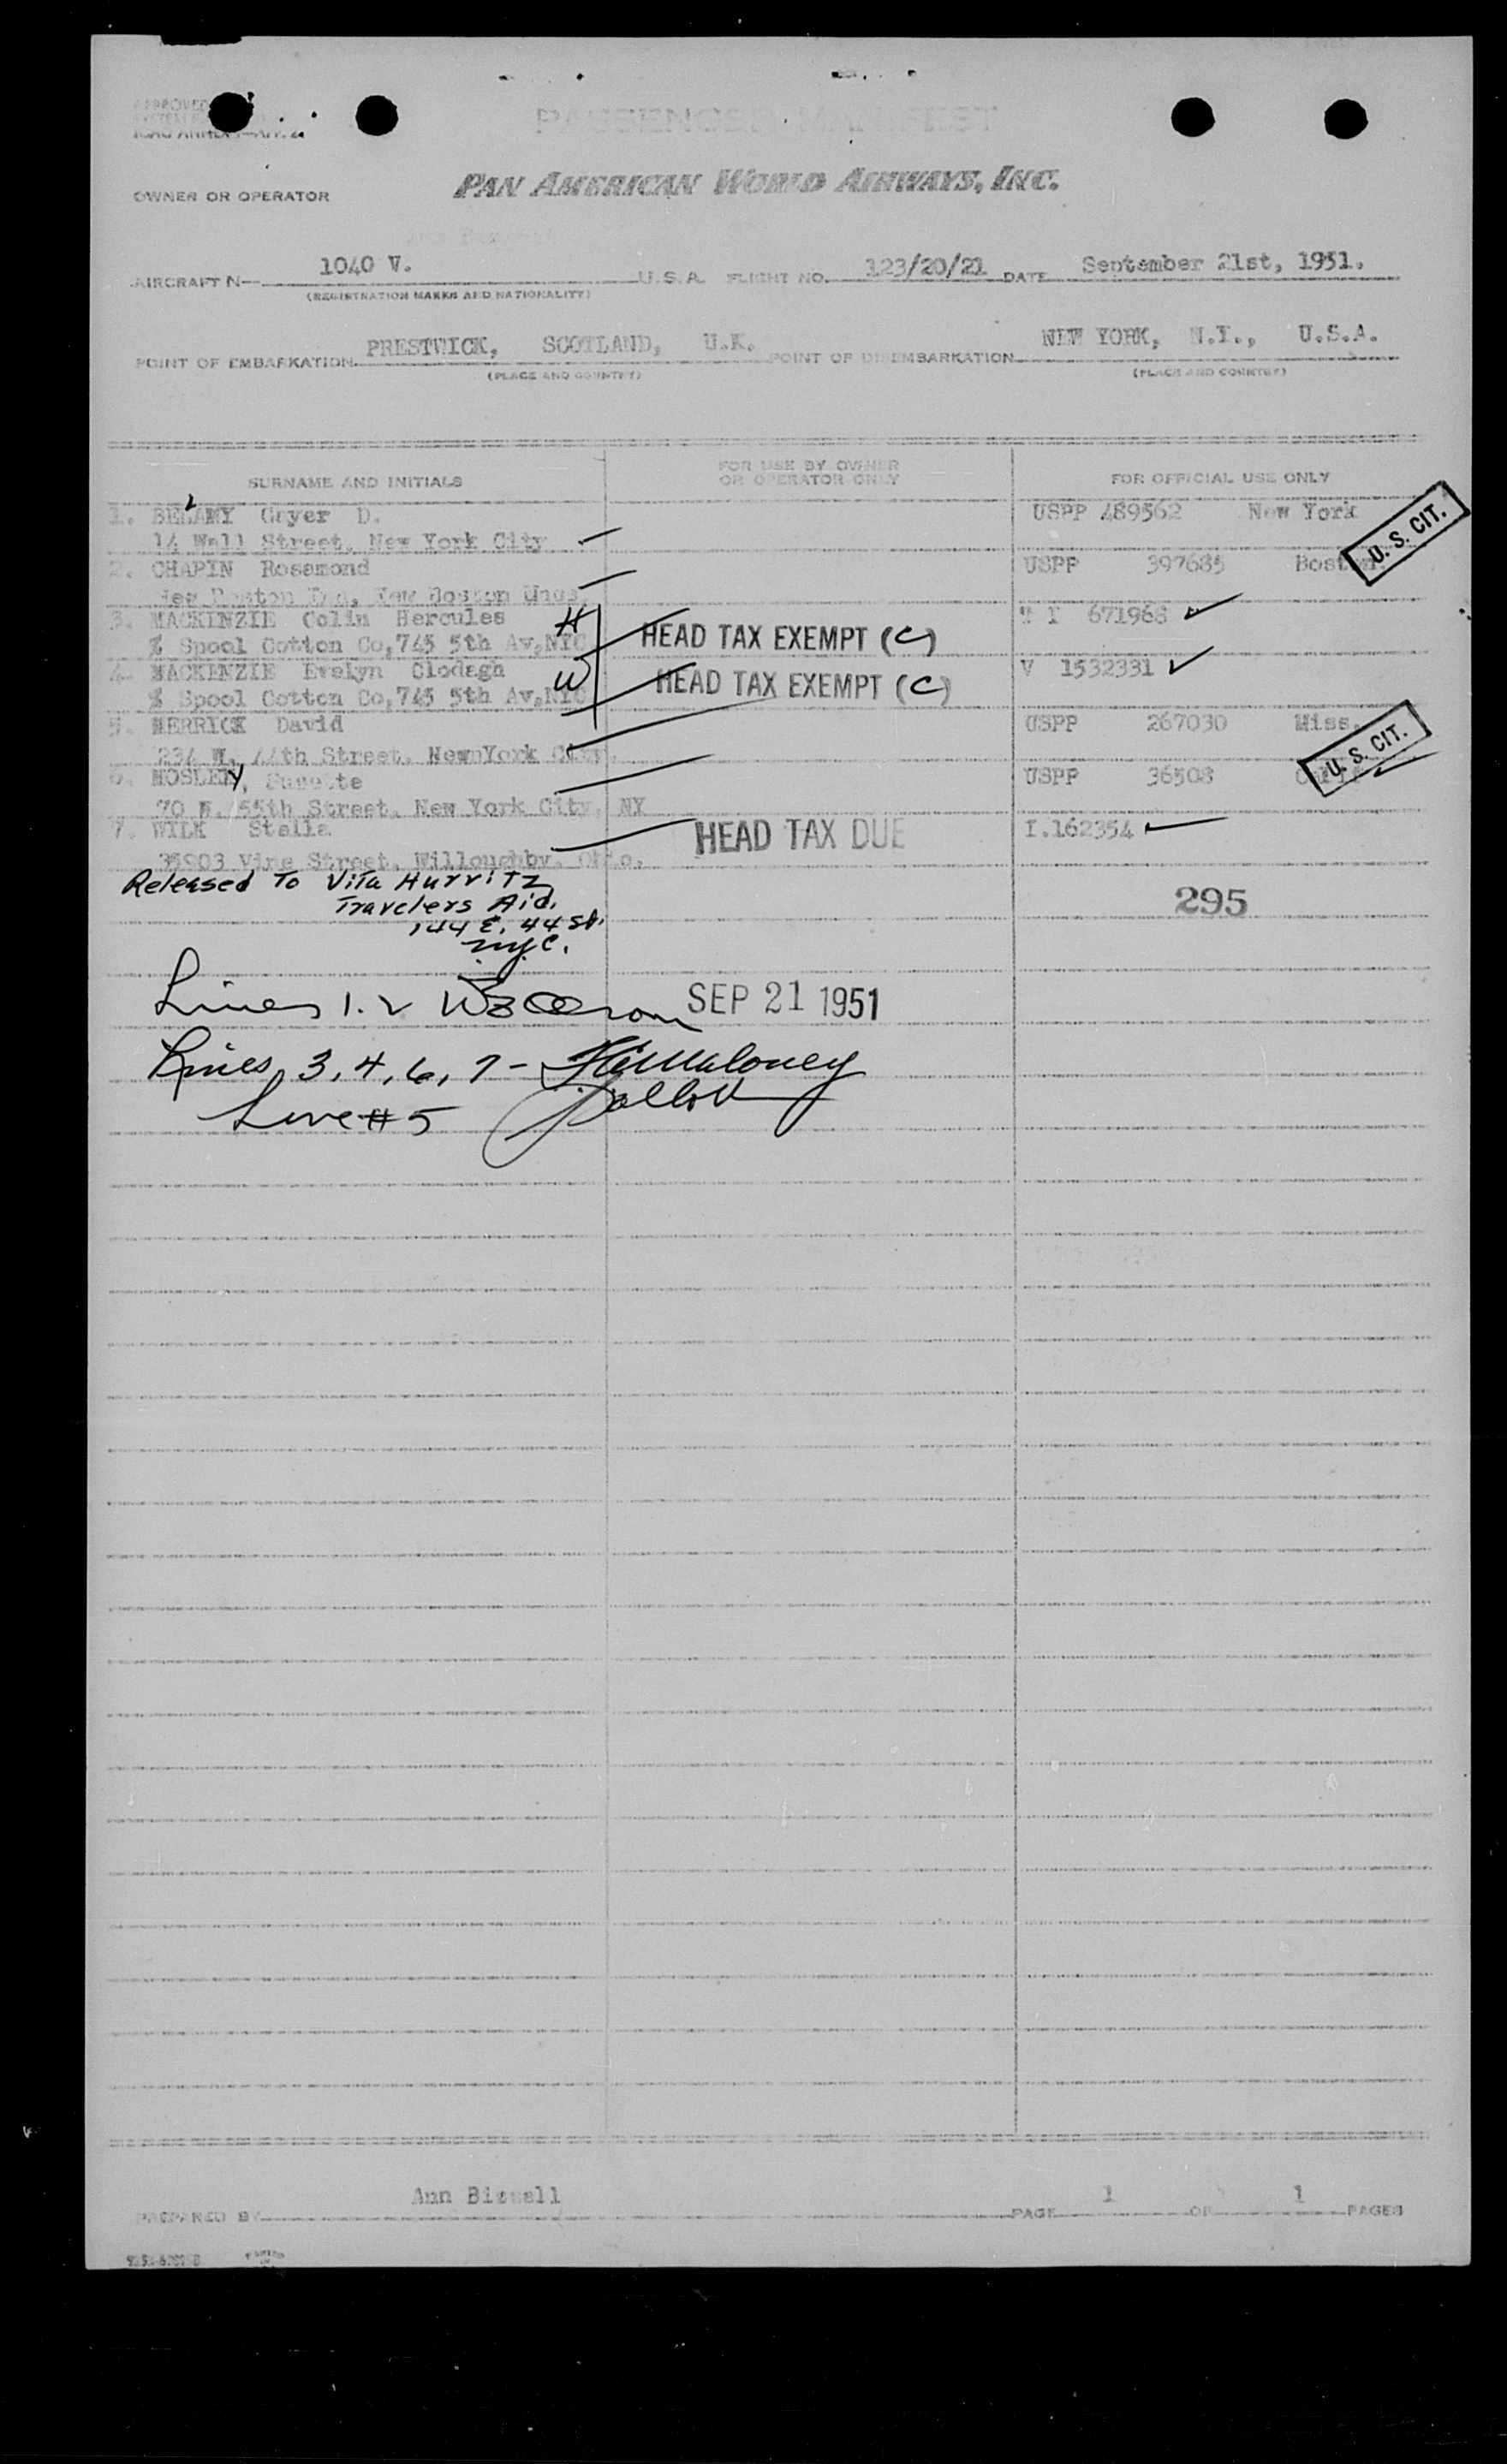 APPROVED
ICAO ANNEX
PASSENGER MANIFEST
OWNER OR OPERATOR PAN AMERICAN WORLD AIRWAYS, INC.
AIRCRAFT N 1040 V. U.S.A. FLIGHT NO. 123/20/21 DATE September 21st, 1951.
(REGISTRATION MARKS AND NATIONALITY)
POINT OF EMBARKATION PRESTWICK, SCOTLAND, U.K. POINT OF DISEMBARKATION NEW YORK, N.Y., U.S.A.
(PLACE AND COUNTRY) (PLACE AND COUNTRY)
SURNAME AND INITIALS FOR USE BY OWNER OR OPERATOR ONLY FOR OFFICIAL USE ONLY
1. BELAMY Gayer D. USPP 489562 New York
L
14 Wall Street, New York City U. S. CIT.
2. CHAPIN Rosamond USPP 397685 Boston.
New Boston Inn, New Boston
3. MACKINZIE Colin Hercules H I 671968
% Spool Cotton Co,745 5th Av,NYC HEAD TAX EXEMPT (C)
4. MACKENZIE Evelyn Clodagh W V 1532331
% Spool Cotton Co,745 5th Av,NYC HEAD TAX EXEMPT (C)
5. MERRICK David USPP 267030 Miss.
234 W. 44th Street, NewnYork City U. S. CIT.
6. MOSLEY, Suzette USPP 36508
70 W. 55th Street, New York City, NY
7. WILK Stella HEAD TAX DUE I.162354
35903 Vine Street, Willoughby, Ohio.
Released To Vita Hurritz
Travelers Aid. 295
144 E. 44 St.
N.Y.C.
Lines 1. 2 SEP 21 1951
Lines 3, 4, 6, 7 - Maloney
Line # 5
Ann Bissell
PREPARED BY PAGE 1 OF 1 PAGES